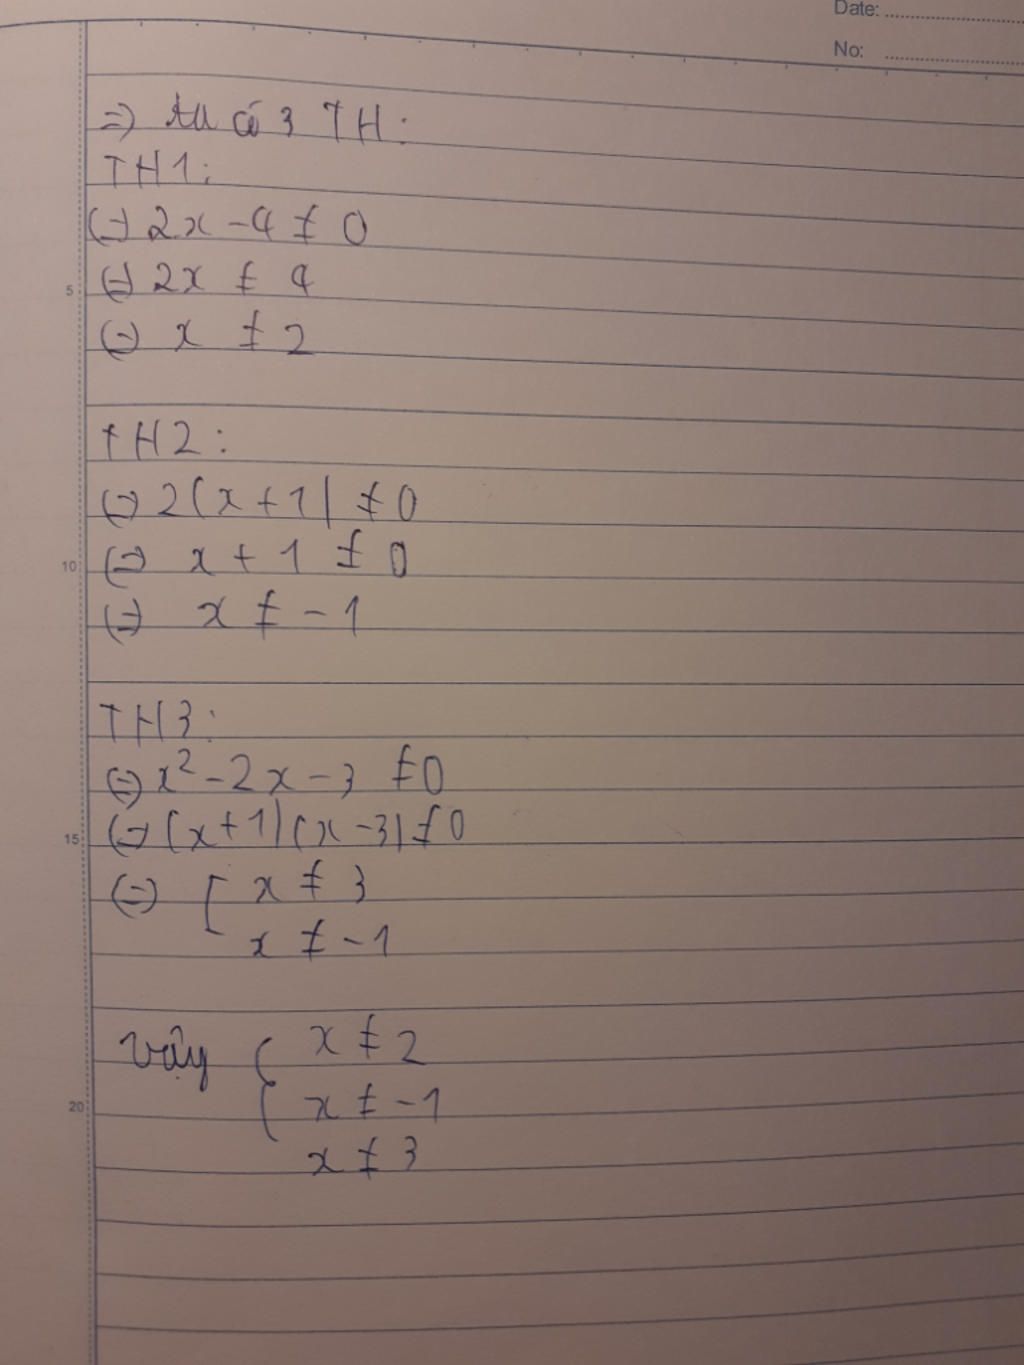 Date:
No:
=> ta có 3 TH:
TH1:
(=) 2x - 4 ≠ 0
5
(=) 2x ≠ 4
(=) x ≠ 2
TH2:
(=) 2(x + 1) ≠ 0
10
(=) x + 1 ≠ 0
(=) x ≠ -1
TH3:
(=) x² - 2x - 3 ≠ 0
15
(=) (x + 1)(x - 3) ≠ 0
(=) [ x ≠ 3
x ≠ -1
Vậy { x ≠ 2
20
x ≠ -1
x ≠ 3